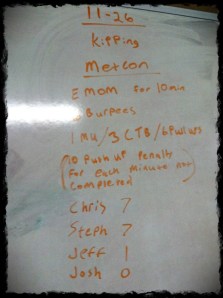 11-26
Kipping
Metcon
EMOM for 10min
3 Burpees
1 MU/3 CTB/6 Pullups
(10 Push up Penalty
for each minute not
completed)
Chris 7
Steph 7
Jeff 1
Josh 0